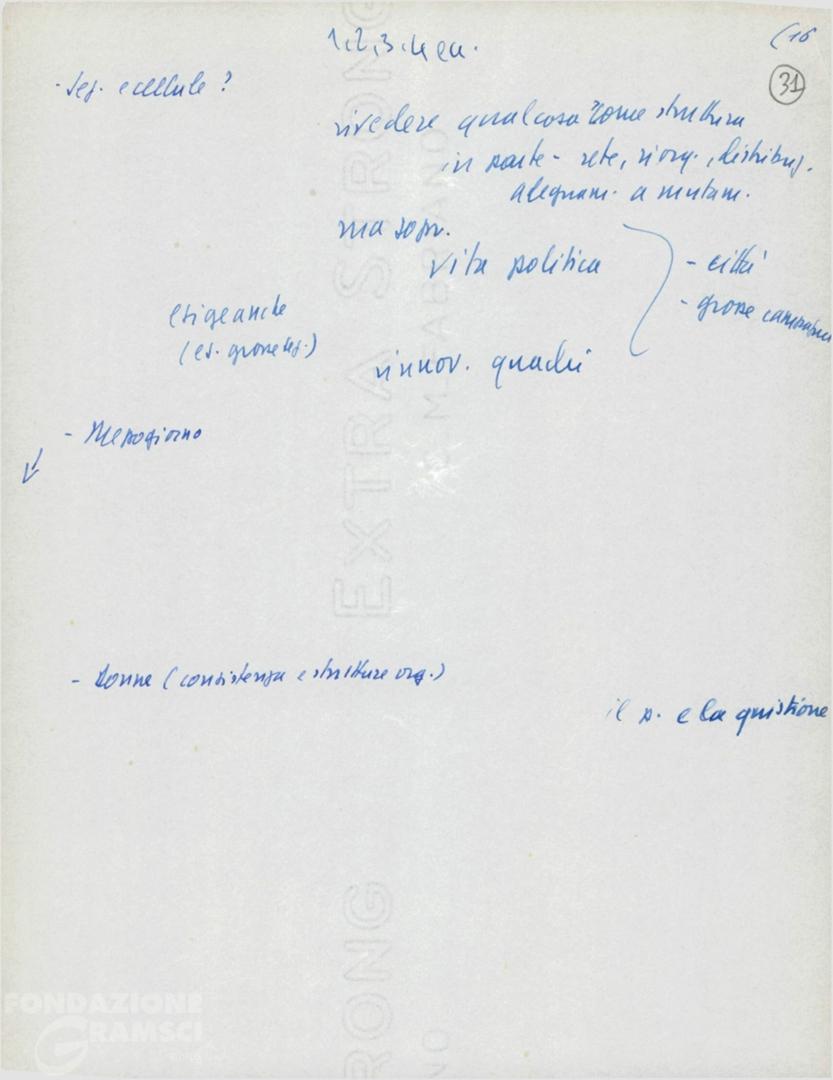 1, 2, 3, 4 ecc.
(16
31
- Sez. e cellule?
rivedere qualcosa come struttura
in parte - rete, riorg., distribuz.
adeguam. a mutam.
ma sopr.
vita politica
- città
- grosse
esige anche
(es. grosse sez.)
rinnov. quadri
- Mezzogiorno
- Donne (consistenza e strutture org.)
il p. e la quistione
EXTRA STRONG
FABRIANO
RONG
NO
FONDAZIONE
GRAMSCI